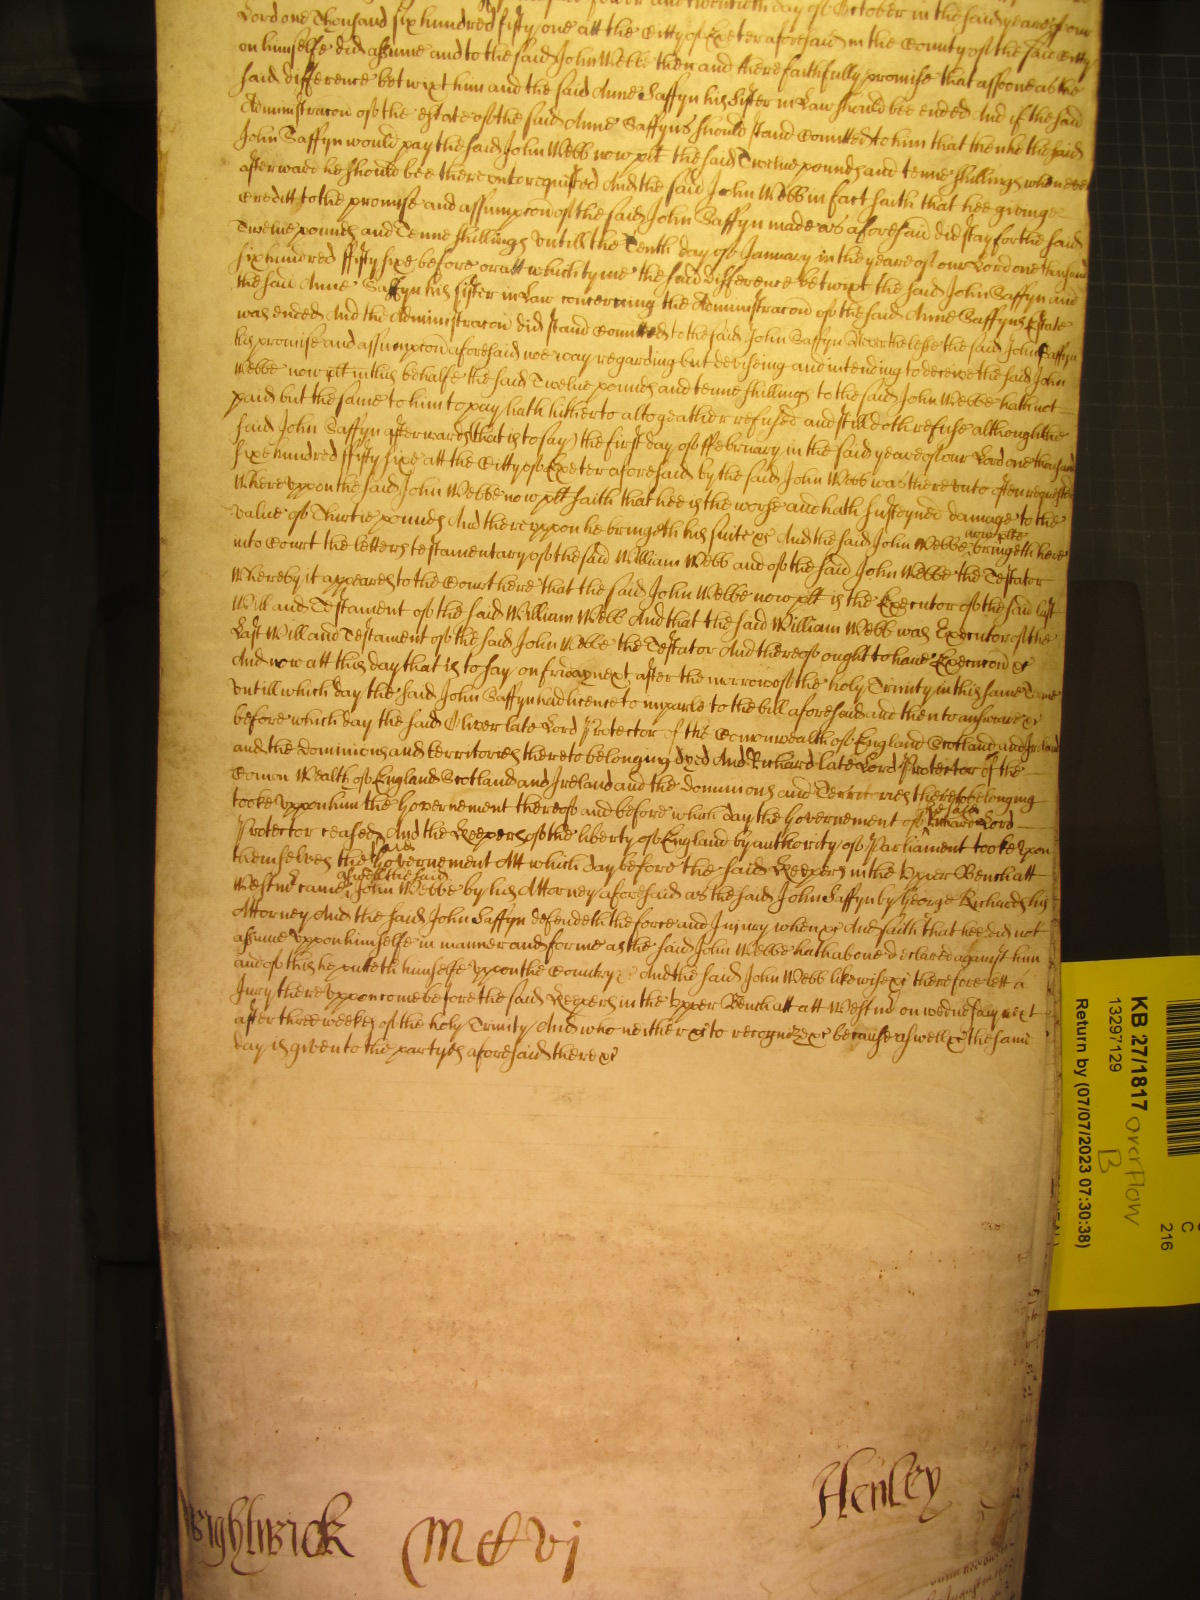 fower and twentieth day of October in the said yeare of our
Lord one Thousand six hundred fifty one att the Citty of Exeter aforesaid in the County of the said Citty
on himselfe did assume and to the said John Webbe then and there faithfully promise that assoone as the
said difference betwixt him and the said Anne Saffyn his Sister in Law should bee ended And if the said
Administracon of the estate of the said Anne Saffyns should stand Comitted to him that then he the said
John Saffyn would pay the said John Webb now plt the said Twelve pounds and tenne shillings when ever
afterward he should bee there unto required And the said John Webb in fact saith that hee giveinge
Creditt to the promise and assumpcon of the said John Saffyn made as aforesaid did stay for the said
Twelve pounds and Tenne shillings untill the Tenth day of January in the yeare of our Lord one thousand
six hundred ffifty sixe before or att which tyme the said difference betwixt the said John Saffyn and
the said Anne Saffyn his sister in Law concerning the Administracon of the said Anne Saffyns Estate
was ended And the Administracon did stand Comitted to the said John Saffyn Neverthelesse the said John Saffyn
his promise and assumpcon aforesaid noe way regarding but deviseing and intending to deceive the said John
Webbe now plt in this behalfe the said Twelve pounds and tenne shillings to the said John Webbe hath not
paid but the same to him to pay hath hitherto altogeather refused and still doth refuse although the
said John Saffyn afterwards (that is to say) the first day of ffebruary in the said yeare of our Lord one thousand
sixe hundred ffifty sixe att the Citty of Exeter aforesaid by the said John Webb was there unto often requested
Whereuppon the said John Webbe now plt saith that hee is the worse and hath susteyned damage to the
value of Thirtie pounds And thereuppon he bringeth his suite &c And the said John Webbe now plte bringeth here
into Court the letters testamentary of the said William Webb and of the said John Webbe the Testator
Whereby it appeares to the Court here that the said John Webbe now plt is the Executor of the said last
Will and Testament of the said William Webb And that the said William Webb was Executor of the
Last Will and Testament of the said John Webbe the Testator And thereof ought to have Execucon &c
And now att this day that is to say on friday next after the morrow of the holy Trinity in this same Terme
untill which day the said John Saffyn had licence to imparle to the bill aforesaid and then to answare &c
before which day the said Oliver late Lord Protector of the Comonwealth of England Scotland and Ireland
and the dominions and territories thereto belonging dyed And Richard late Lord Protector of the
Comon Wealth of England Scotland and Ireland and the dominions and Territories thereto belonging
tooke uppon him the Governement thereof and before which day the Governement of the said Richard Lord
Protector ceased And the Keepers of the liberty of England by authority of Parliament tooke upon
themselves the said Governement Att which day before the said Keepers in the Upper Bench att
Westmr came aswell the said John Webbe by his Attorney aforesaid as the said John Saffyn by George Richards his
Attorney And the said John Saffyn defendeth the force and Injury when &c And saith that hee did not
assume uppon himselfe in manner and forme as the said John Webbe hath above declared against him
and of this he putteth himselfe uppon the Country &c And the said John Webb likewise &c therefore lett a
Jury thereuppon come before the said Keepers in the Upper Bench att att Westmr on wednesday next
after three weekes of the holy Trinity And who neither &c to recognize &c because aswell &c the same
day is given to the partyes aforesaid there &c
Wightwick
MCCvj
Henley
KB 27/1817 overflow
B
13297129
Return by (07/07/2023 07:30:38)
C
216